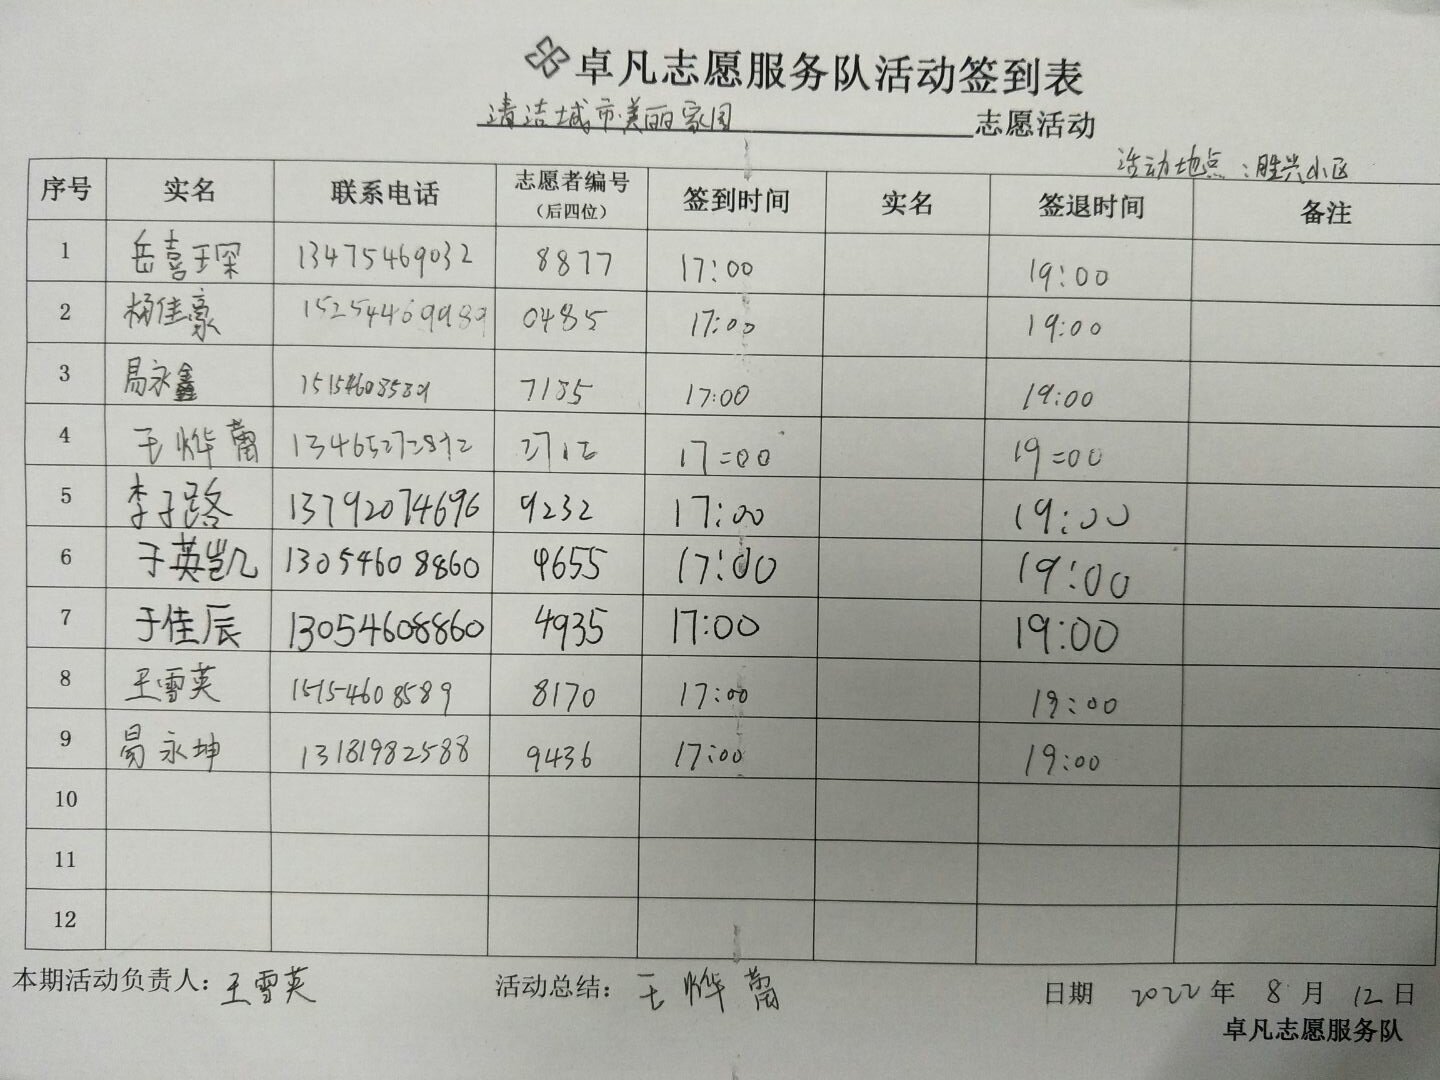 卓凡志愿服务队活动签到表
清洁城市美丽家园 志愿活动
活动地点：胜兴小区
序号 实名 联系电话 志愿者编号（后四位） 签到时间 实名 签退时间 备注
1 岳喜琛 13475469032 8877 17:00 19:00
2 杨佳豪 15254469989 0485 17:00 19:00
3 易永鑫 15154608589 7185 17:00 19:00
4 王烨 17:00 19:00
5 李子路 13792074696 9232 17:00 19:00
6 于英凯 13054608860 9655 17:00 19:00
7 于佳辰 13054608860 4935 17:00 19:00
8 王雪英 15154608589 8170 17:00 19:00
9 易永坤 13181982588 9436 17:00 19:00
10
11
12
本期活动负责人：王雪英 活动总结：王烨 日期 2022年 8月 12日
卓凡志愿服务队